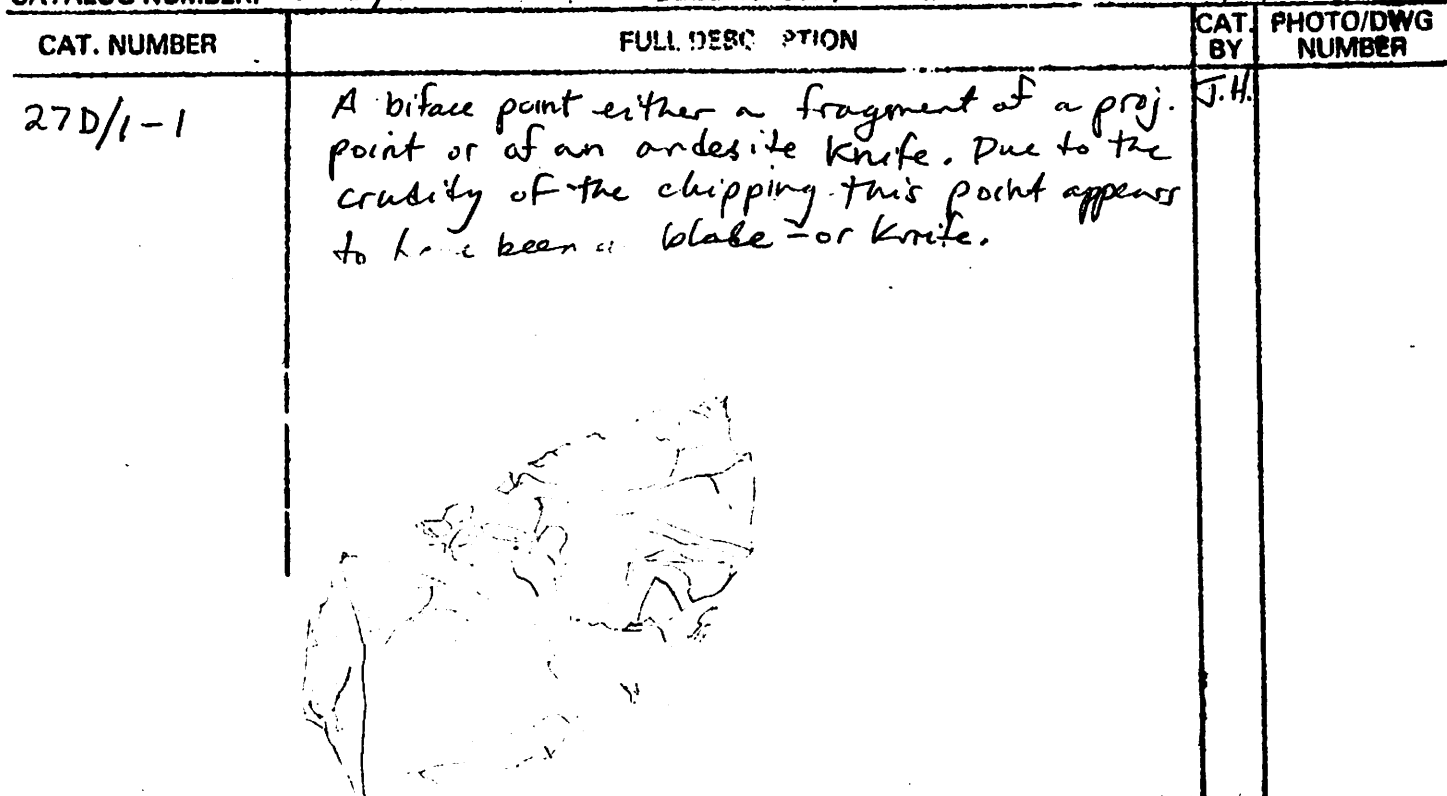 CATALOG NUMBER:
CAT. NUMBER FULL DESC PTION CAT. BY PHOTO/DWG NUMBER
27D/1-1
A biface point either a fragment of a proj. J.H.
point or of an andesite knife. Due to the
crudity of the chipping this point appears
to been a blade - or knife.